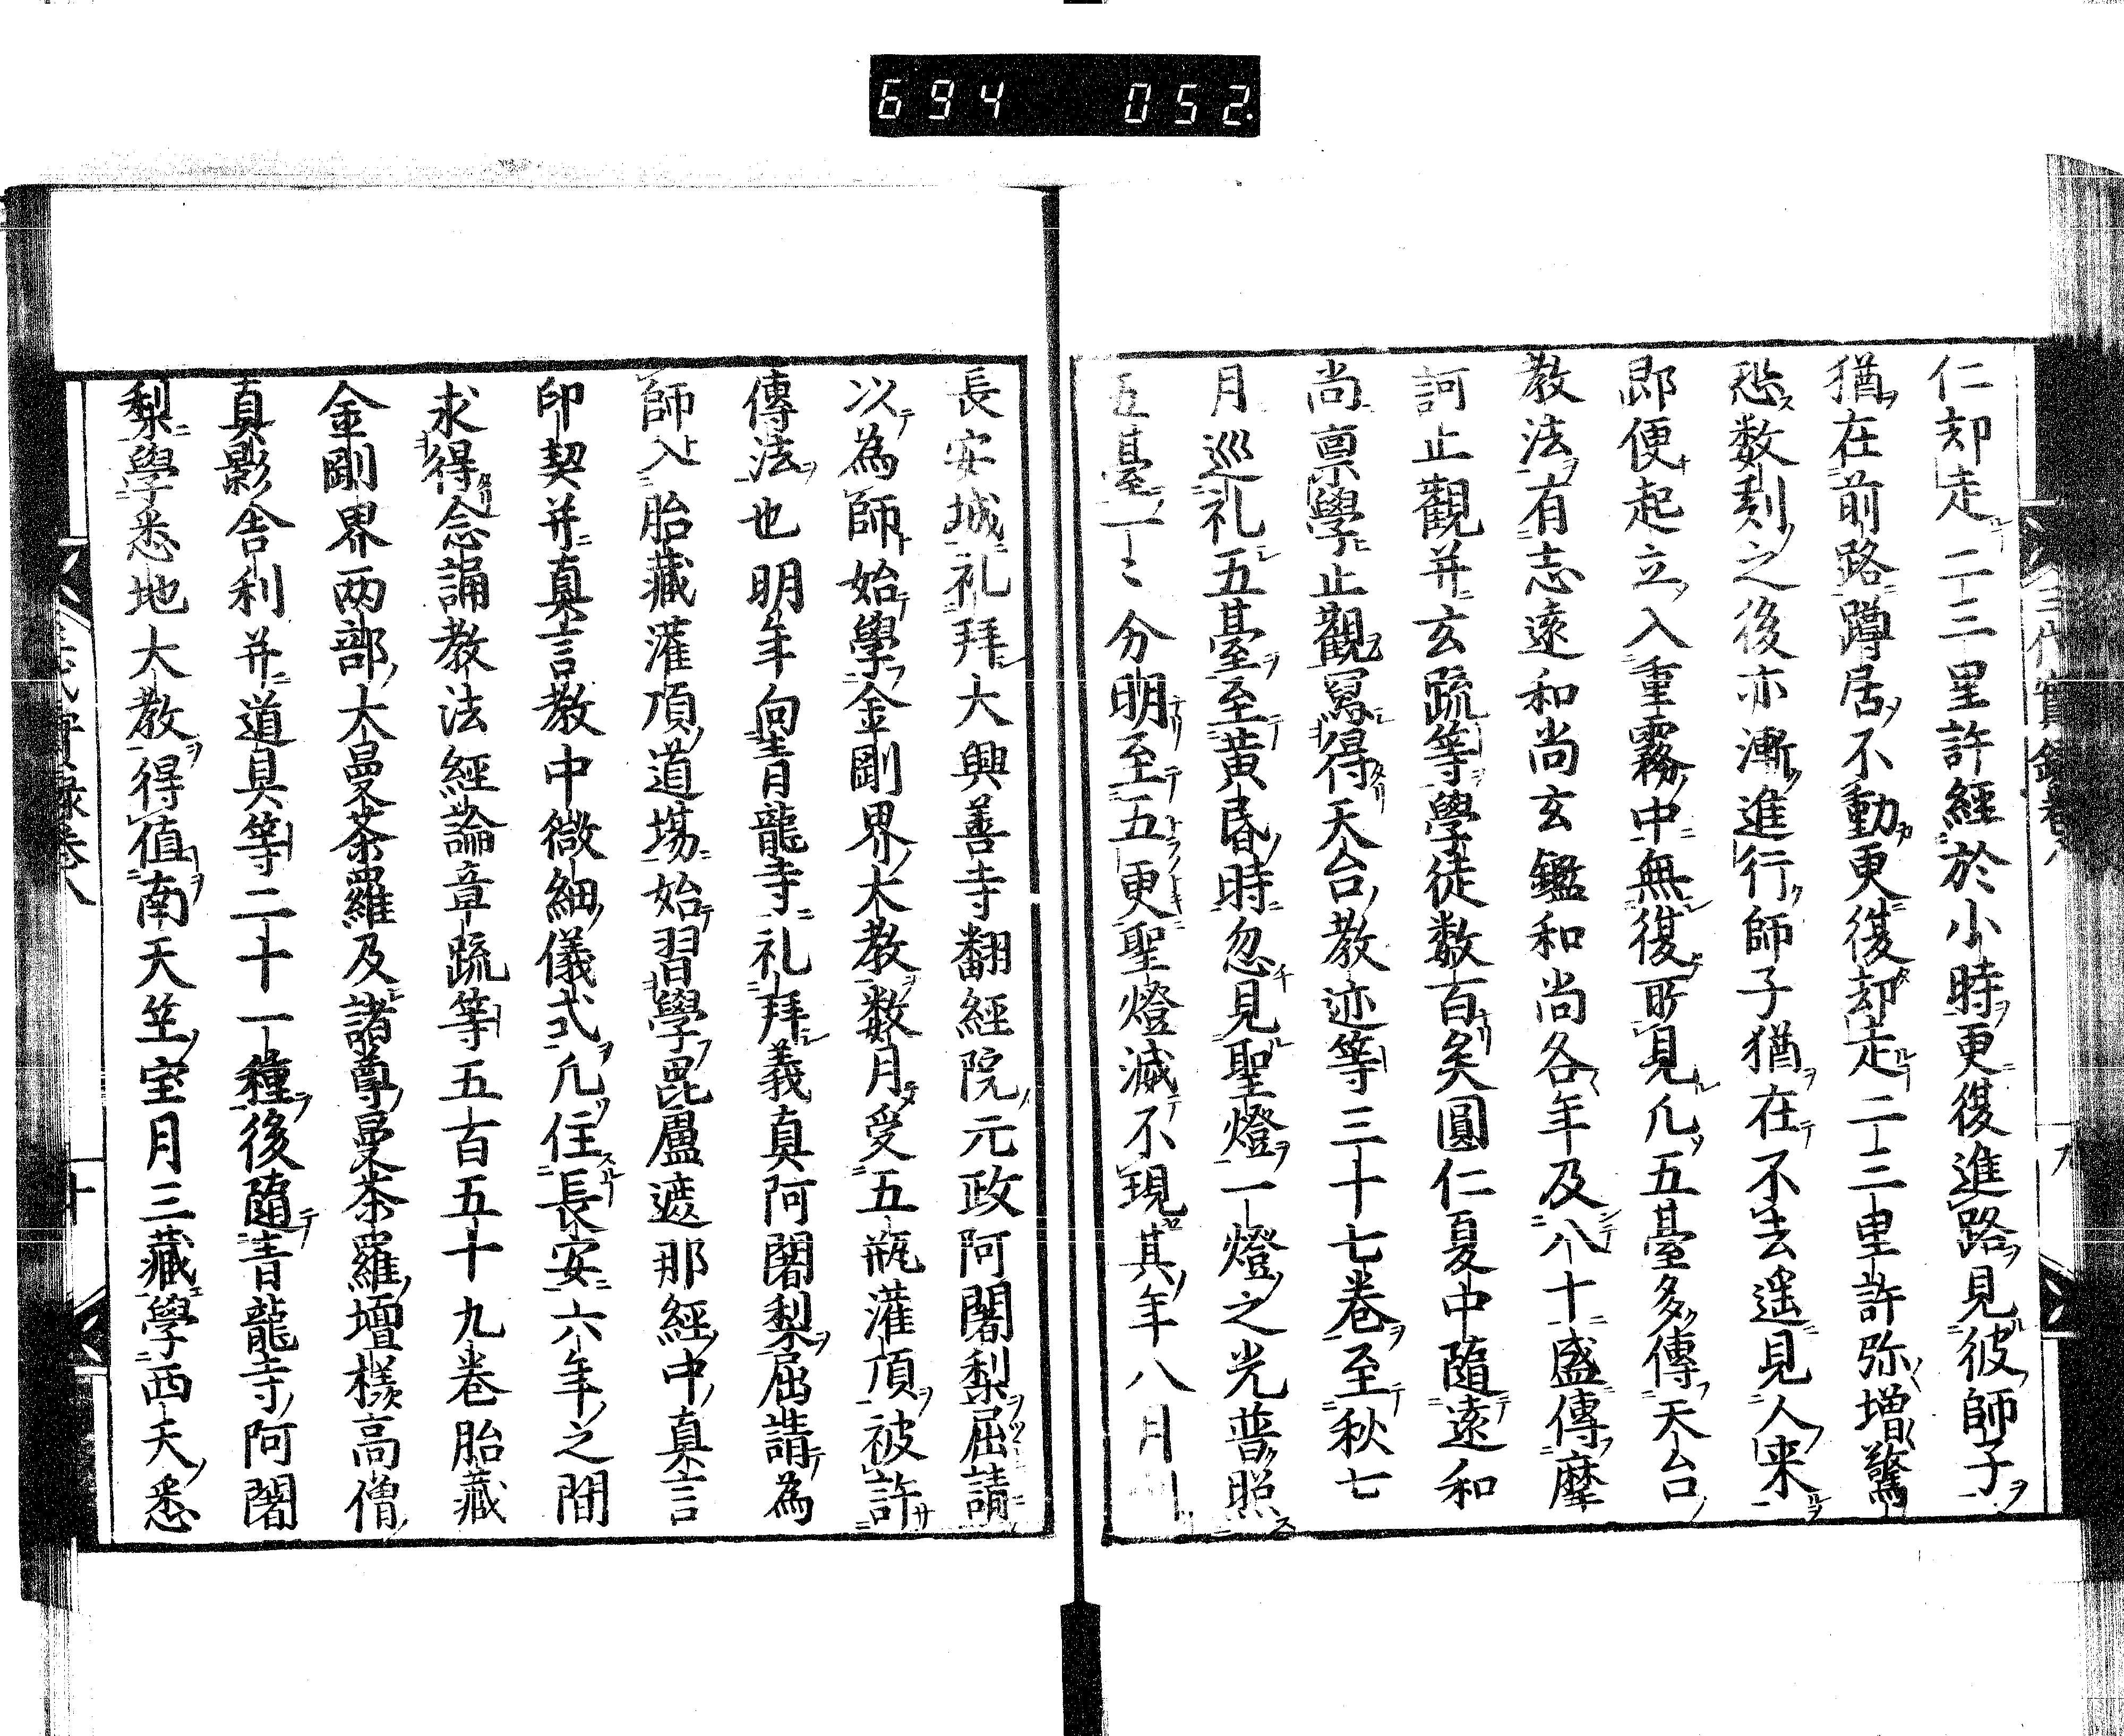 694 052.
仁却走二三里許經於小時更復進路見彼師子
猶在前路蹲居不動更復却走二三里許弥増驚
恐数剋之後亦漸進行師子猶在不去遥見人来
即便起立入重霧中無復所見凡五臺多傳天台
教法有志遠和尚玄鑑和尚各年及八十盛傳摩
訶止觀并玄疏等學徒数百矣圓仁夏中隨遠和
尚禀學止觀冩得天台教迹等三十七巻至秋七
月巡礼五臺至黄昏時忽見聖燈一燈之光普照
五臺一〻分明至五更聖燈滅不現其年八月到
長安城礼拜大興善寺翻經院元政阿闍梨屈請
以為師始學金剛界大教数月受五瓶灌頂被許
傳法也明年向青龍寺礼拜義真阿闍梨屈請為
師入胎藏灌頂道場始習學毘盧遮那經中真言
印契并真言教中微細儀式凡住長安六年之間
求得念誦教法經論章疏等五百五十九巻胎藏
金剛界两部大曼荼羅及諸尊曼荼羅壇様高僧
真影舎利并道具等二十一種後隨青龍寺阿闍
梨學悉地大教得值南天竺宝月三藏學西天悉
三代實録巻八
十